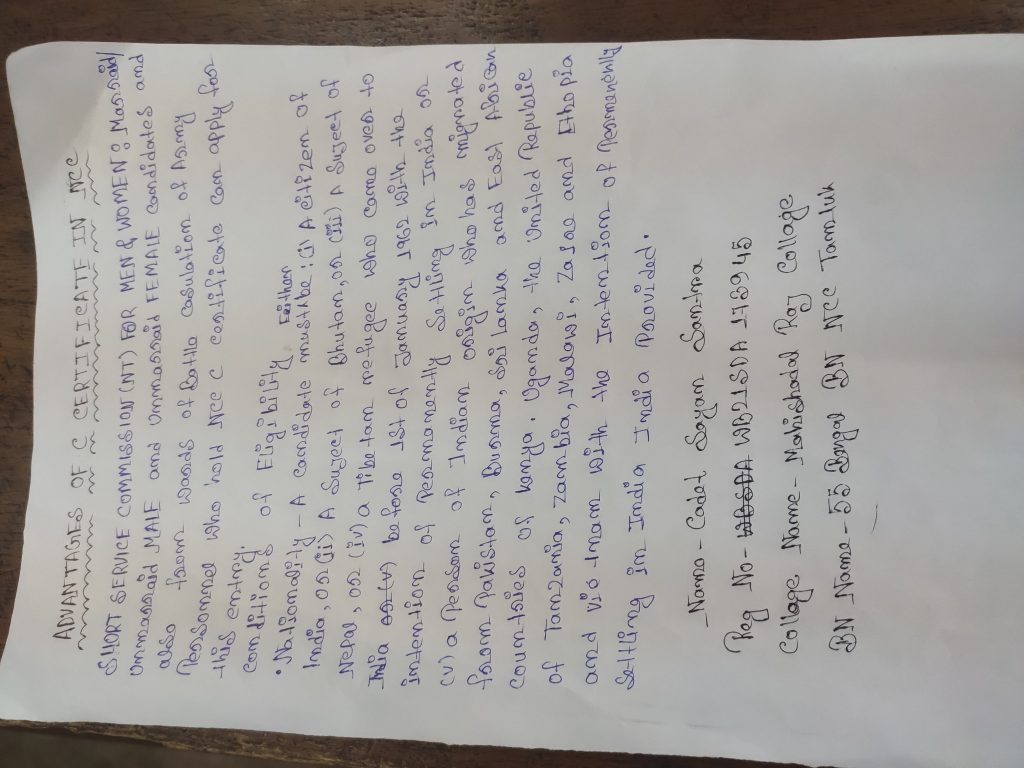 ADVANTAGES OF C CERTIFICATE IN NCC
SHORT SERVICE COMMISSION (NT) FOR MEN & WOMEN: Marraid/
Unmarraid MALE and Unmarraid FEMALE Candidates and
also from wards of Batle Casulation of Army
Personnel who hold NCC C certificate can apply for
this entry.
Conditions of Eligibility Either
• Nationality - A Candidate must be: (i) A Citizen of
India, or (ii) A Suject of Bhutan, or (iii) A Suject of
Nepal, or (iv) a Tibetan refugee who came over to
India or (v) before 1st of January 1962 with the
intention of Permanently Settling in India or
(v) a Person of Indian origin who has migrated
from Pakistan, Burma, Sri Lanka and East African
Countries of Kenya. Uganda, the United Republic
of Tanzania, Zambia, Malawi, Zarae and Ethopia
and Vietnam with the Intention of Permanently
Settling in India India Provided.
Name - Cadet Sayan Santra
Reg No - WBSDA WB21SDA 1789 45
College Name - Mahishadal Raj College
BN Name - 55 Bengal BN NCC Tamluk